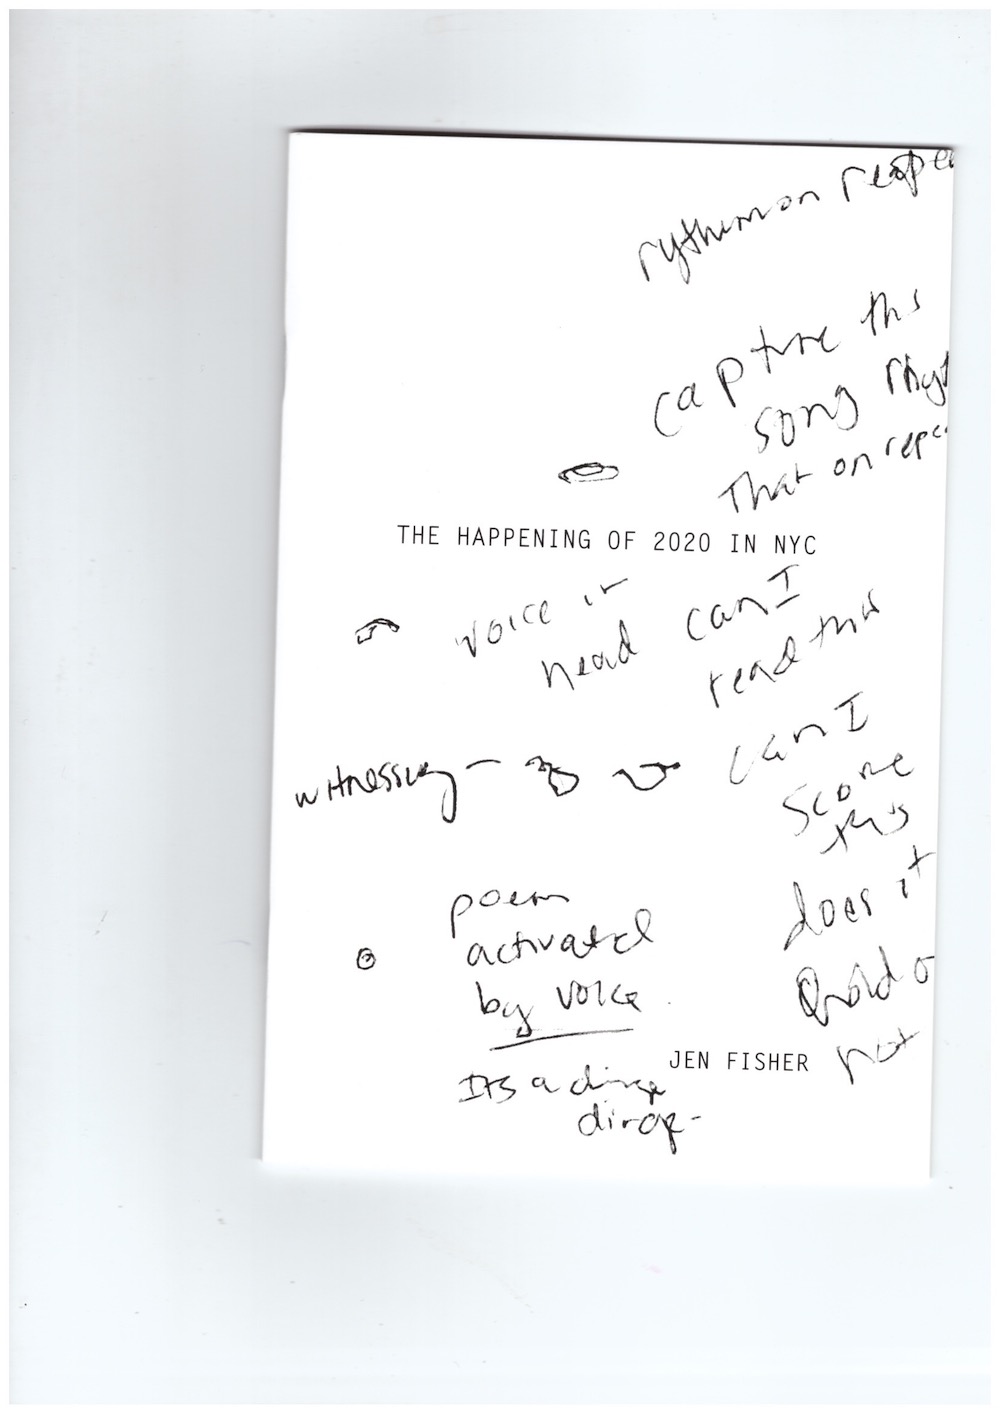 rythum on
capture ths
song
That on
THE HAPPENING OF 2020 IN NYC
voice in
head
can I
read this
witnessing –
can I
score
this
poem
activated
by voice
does it
not
JEN FISHER
Its a dirge
dirge-